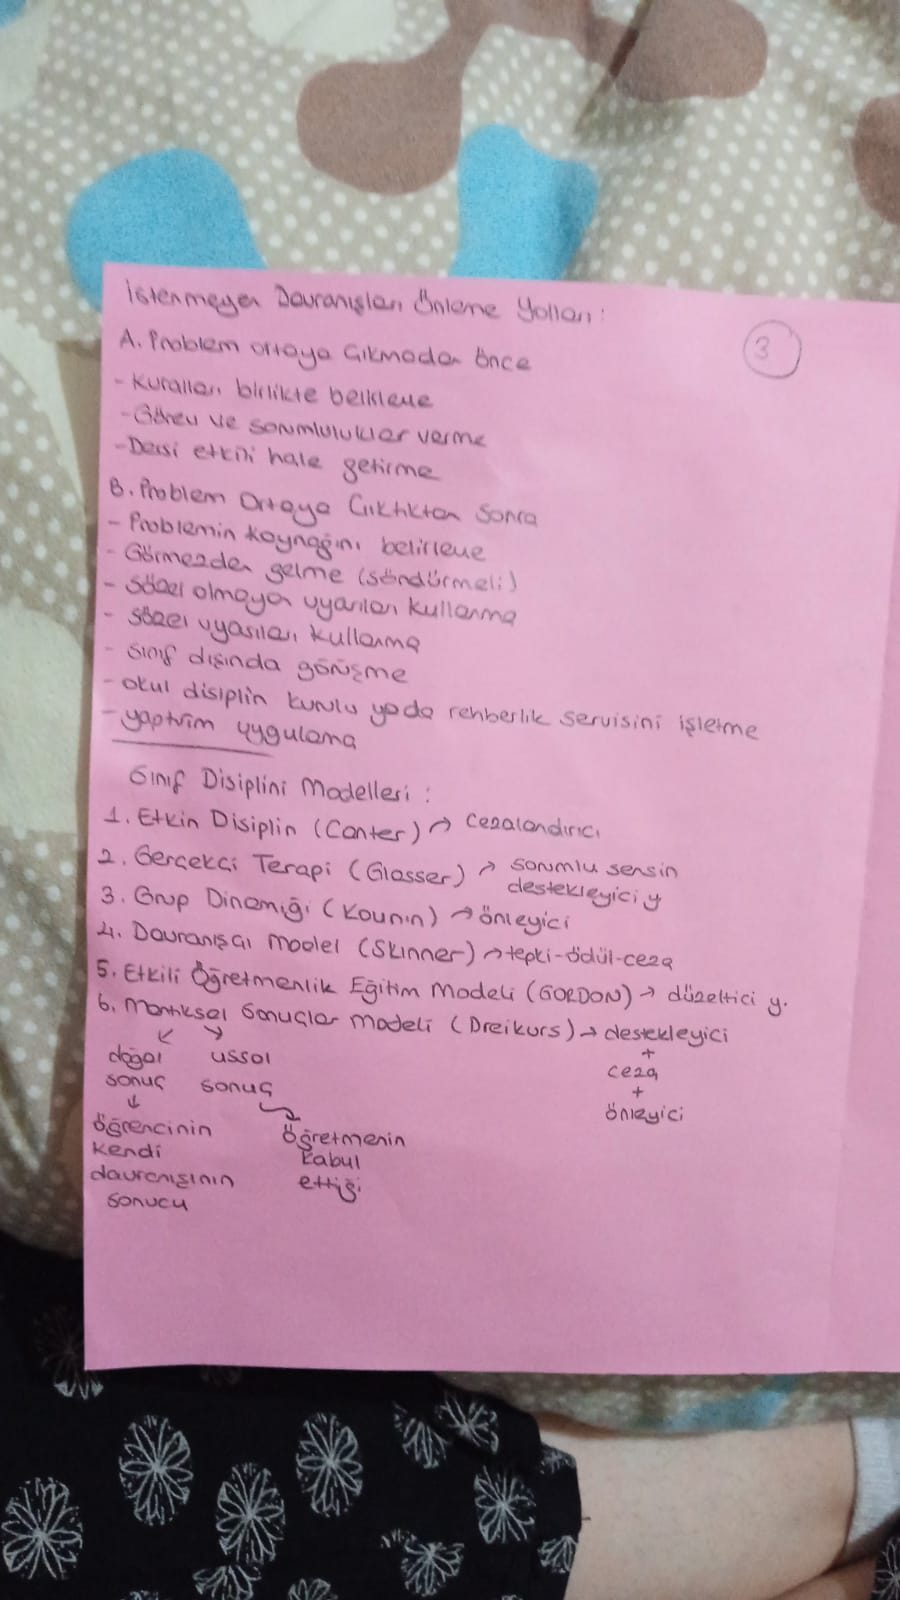 İstenmeyen Davranışları Önleme Yolları:
3
A. Problem ortaya Çıkmadan Önce
- Kuralları birlikte belirleme
- Görev ve sorumluluklar verme
- Dersi etkili hale getirme
B. Problem Ortaya Çıktıktan Sonra
- Problemin kaynağını belirleme
- Görmezden gelme (söndürmeli)
- Sözel olmayan uyarıları kullanma
- sözel uyarıları kullanma
- sınıf dışında görüşme
- okul disiplin kurulu yada rehberlik servisini işletme
- yaptırım uygulama
Sınıf Disiplini Modelleri:
1. Etkin Disiplin (Canter) → Cezalandırıcı
2. Gerçekçi Terapi (Glasser) → sorumlu sensin
destekleyici y
3. Grup Dinamiği (Kounin) → önleyici
4. Davranışçı model (Skinner) → tepki-ödül-ceza
5. Etkili Öğretmenlik Eğitim Modeli (GORDON) → düzeltici y.
6. Mantıksal Sonuçlar Modeli (Dreikurs) → destekleyici
+
ceza
+
önleyici
doğal ussal
sonuç sonuç
öğrencinin öğretmenin
kendi kabul
davranışının ettiği
sonucu